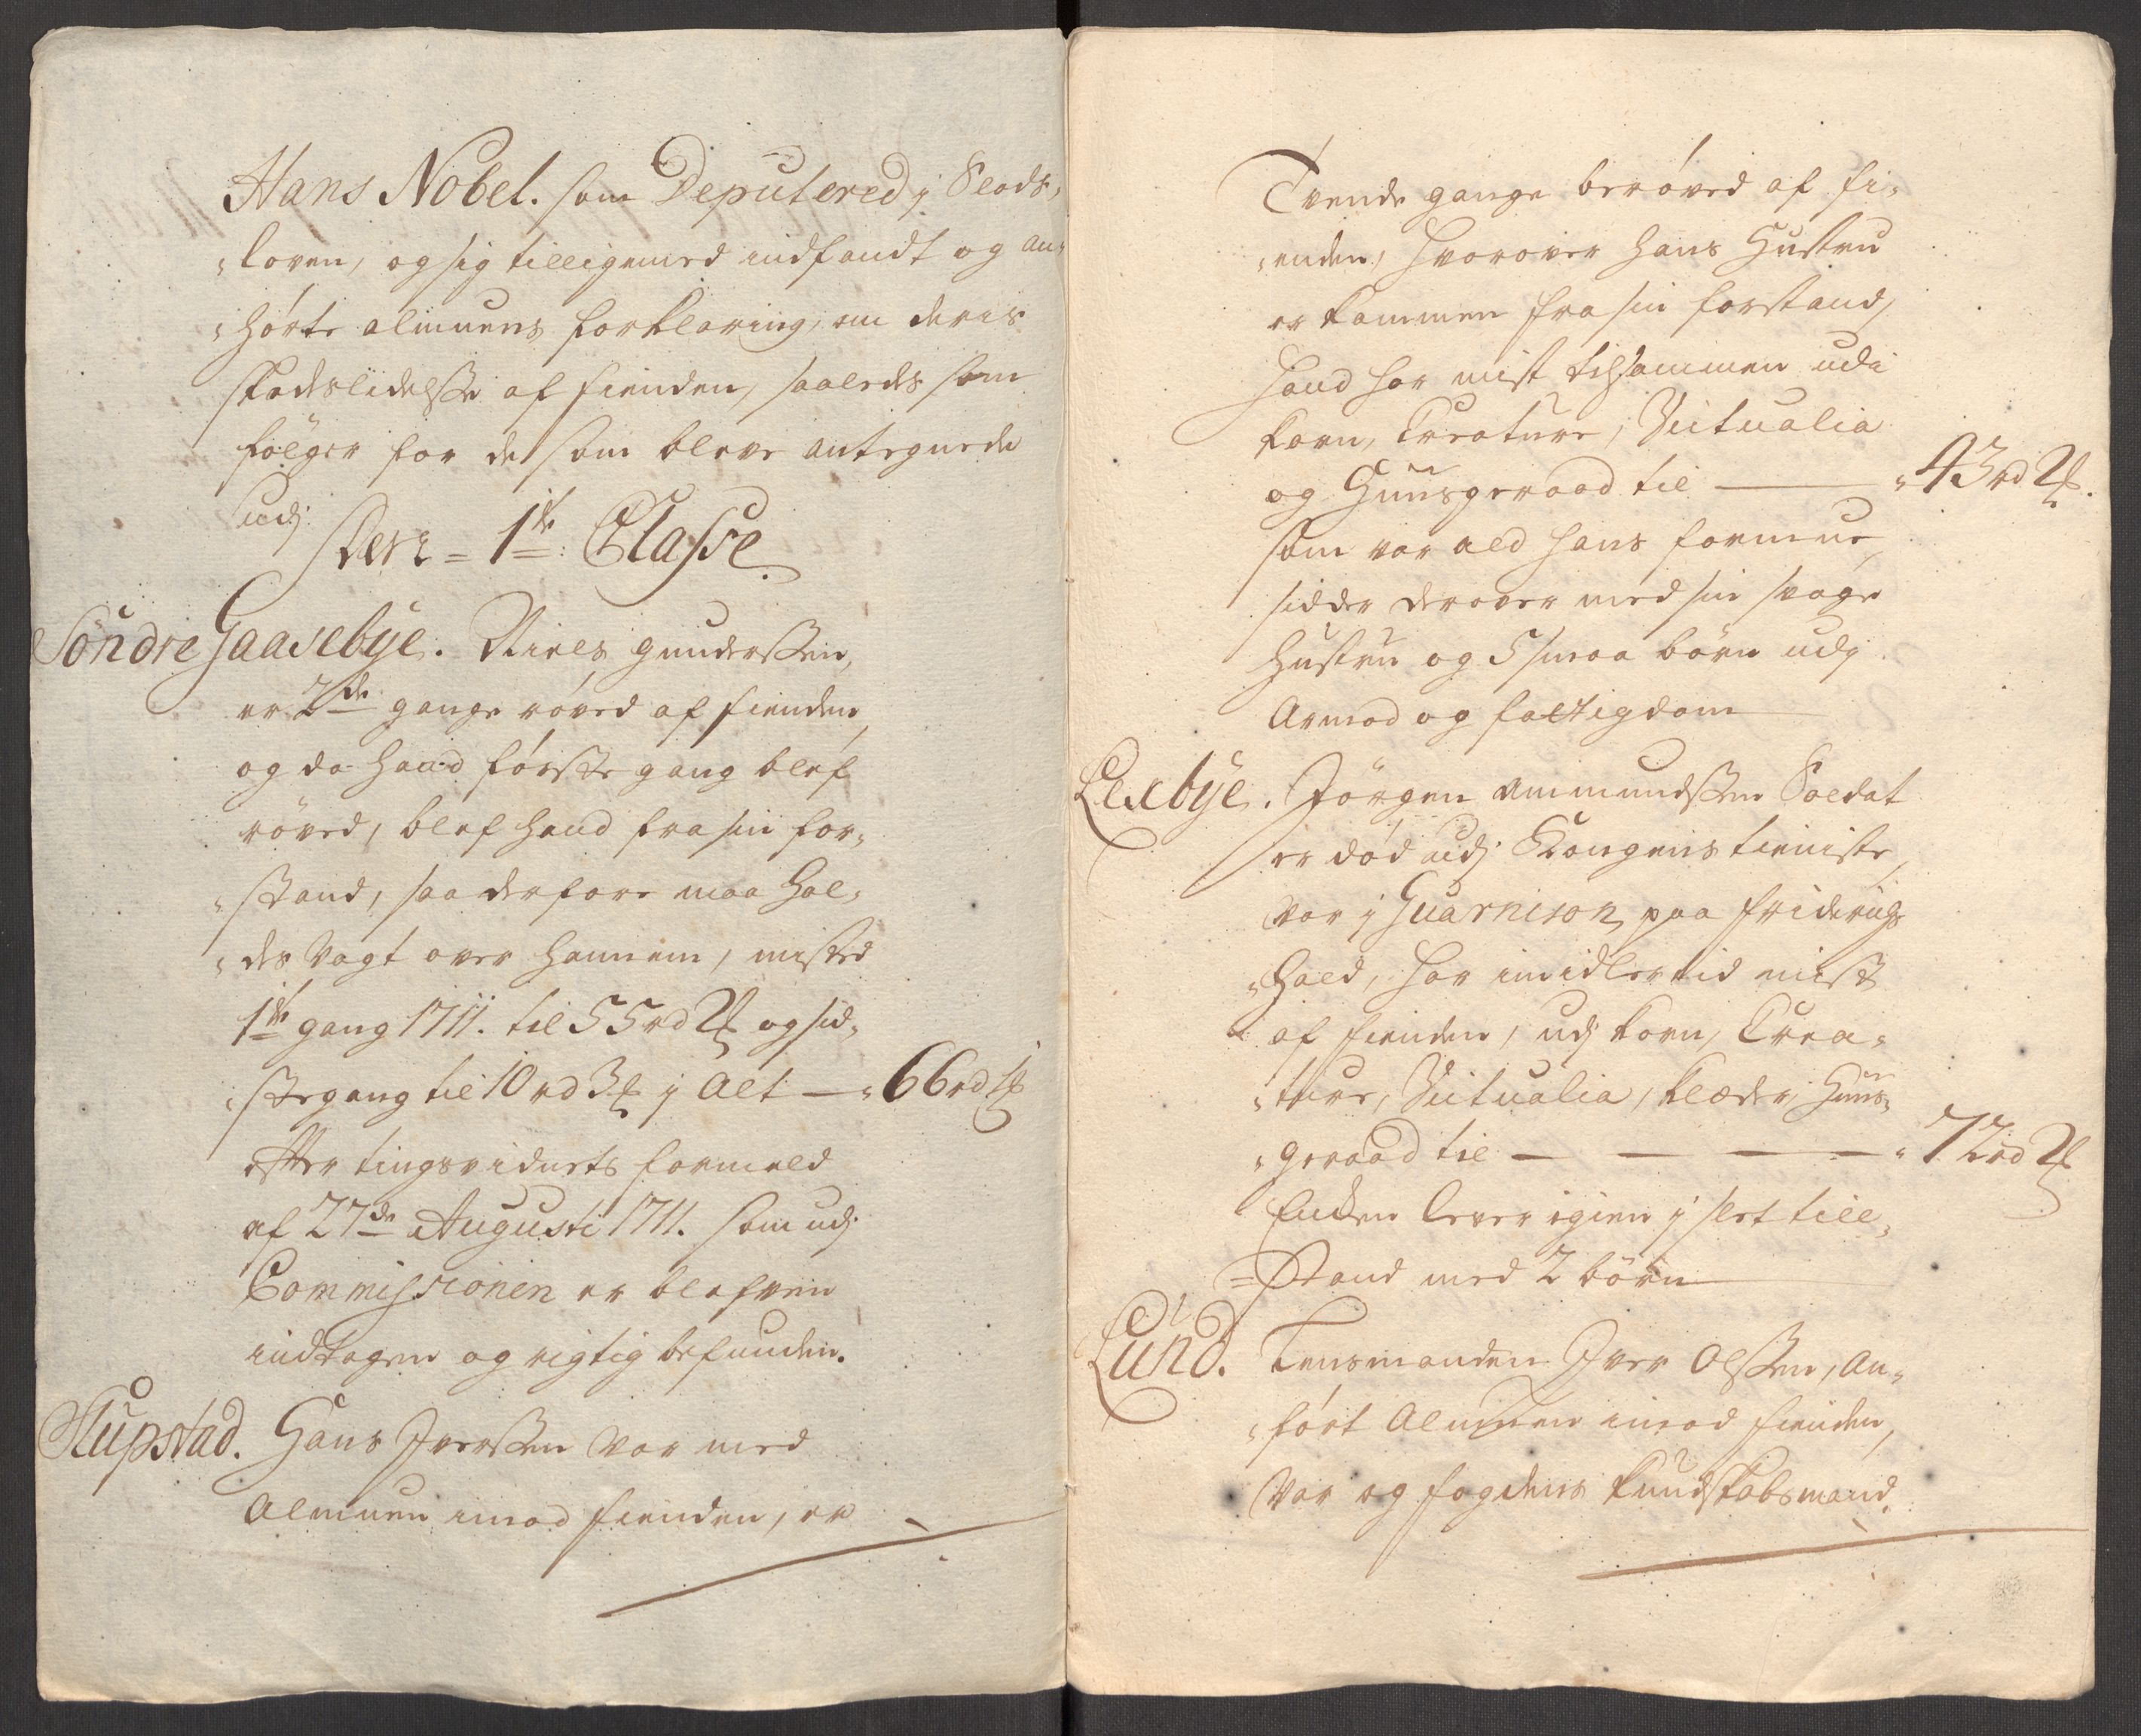 Hans Nobel. som Deputered j Slods,
"loven, og sig tilligemed indfandt og an„
"hørte almuens forklaring, om deris
skadeslidelsse af fienden, saaledes som
følger for de som bleve antegnede
udj:
den 1ste Classe
Søndre Gaasebye. Niels gunderssen,
er 2de gange røved af fienden,
og da hand første gang blef
røved, blef hand fra sin for„
"stand, saa derfore maa hol„
"des vagt over hannem, misted
1ste gang 1711. til 55 rd 2 og sid„
"ste gang til 10 rd 3 j Alt — „ 66 rd 1
efter tingsvidnets formeld
af 27de Augusti 1711. som udj
Commissionen er blefven
indtagen og rigtig befunden.
Klupstad. Hans Iverssen var med
Almuen imod fienden, er
Tvende gange berøved af fi„
"enden, hvorover hans Hustru
er kommen fra sin forstand,
hand har mist tilsammen udi
korn, Creature, Victualia
og Huusgeraad til — „ 43 rd 2.
som var ald hans formue,
sidder derover med sin svage
hustru og 5 smaa børn udj
Armod og fattigdom
Lexbye. Jørgen Ammundssen Soldat
er død udj Kongens tieniste,
var j Guarnison paa friderichs
"hald, har imidlertid mist
af fienden, udj korn, Crea„
"ture, Victualia, klæder, Huus„
"geraad til — — — — „ 72 rd 2
Enken lever igien j slet till„
=stand med 2 børn
Lund. Lensmanden Iver Olssen, An„
"ført Almuen imod fienden,
var og fogdens kundskabsmand,